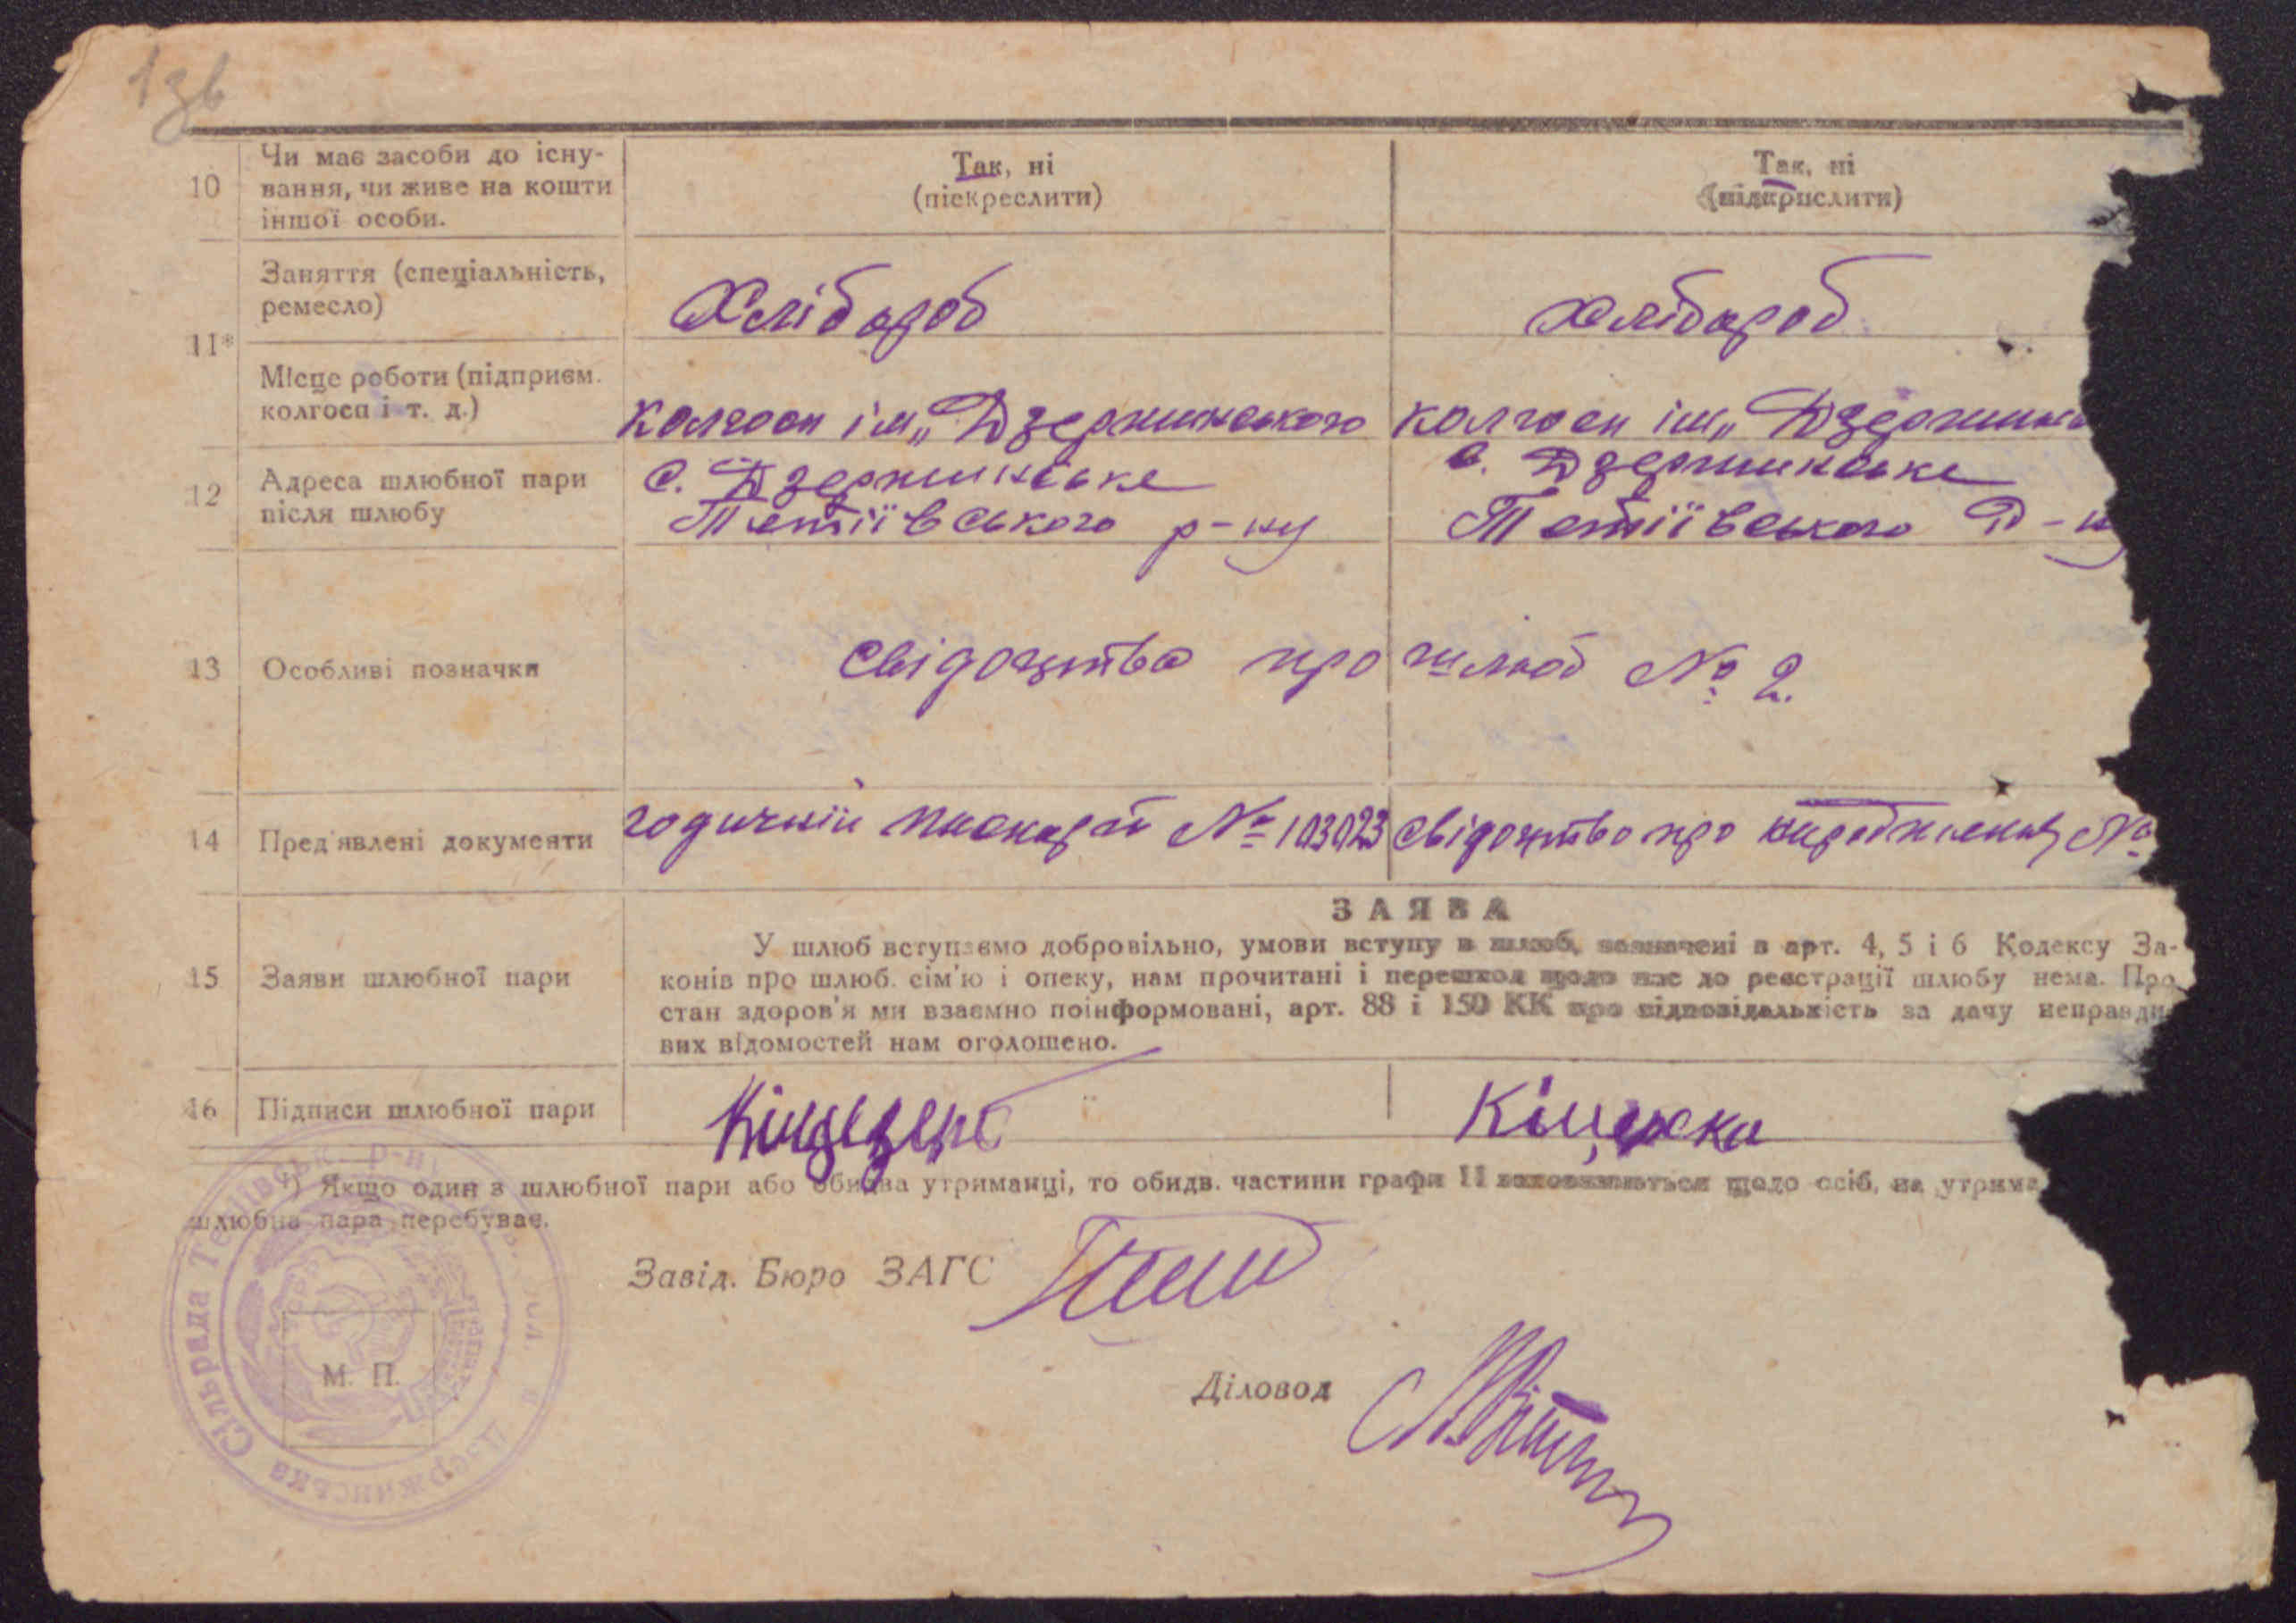 1 зв
10 Чи має засоби до існу-
вання, чи живе на кошти
іншої особи.
Так, ні
(піскреслити)
Так, ні
(підкрислити)
11*
Заняття (спеціальність,
ремесло)
Хлібороб
хлібороб
Місце роботи (підприєм.
колгосп і т. д.)
колгосп ім„ Дзержинського
колгосп ім„ Дзержинсь
12 Адреса шлюбної пари
після шлюбу
с. Дзержинське
Тетіївського р-ну
с. Дзержинське
Тетіївського Р-ну
13 Особливі позначки
Свідоцтво про шлюб № 2.
14 Пред'явлені документи
годичній паспорт № 103023
свідоцтво про народження №
15 Заяви шлюбної пари
ЗАЯВА
У шлюб вступаємо добровільно, умови вступу в шлюб, зазначені в арт. 4, 5 і 6 Кодексу За-
конів про шлюб. сім'ю і опеку, нам прочитані і перешкод щодо нас до реєстрації шлюбу нема. Про
стан здоров'я ми взаємно поінформовані, арт. 88 і 150 КК про відповідальність за дачу неправди
вих відомостей нам оголошено.
16 Підписи шлюбної пари
*) Якщо один з шлюбної пари або обидва утриманці, то обидв. частини графи 11 заповнюються щодо осіб, на утрима
шлюбна пара перебуває.
Завід. Бюро ЗАГС
М. П.
Діловод
Дзержинська Сільрада Тетіївськ. р-н